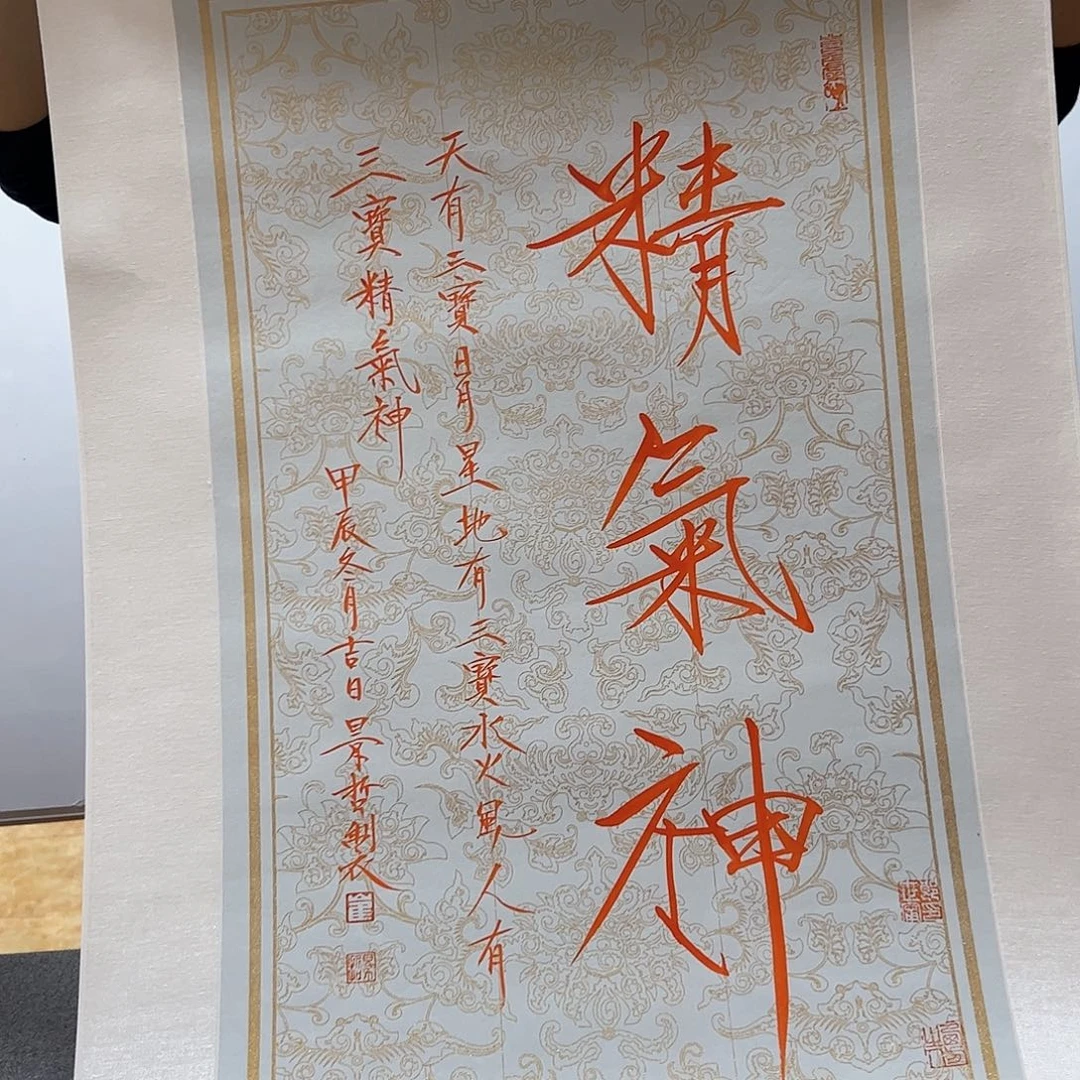 精氣神
天有三寶日月星地有三寶水火風人有
三寶精氣神
甲辰冬月吉日景哲製